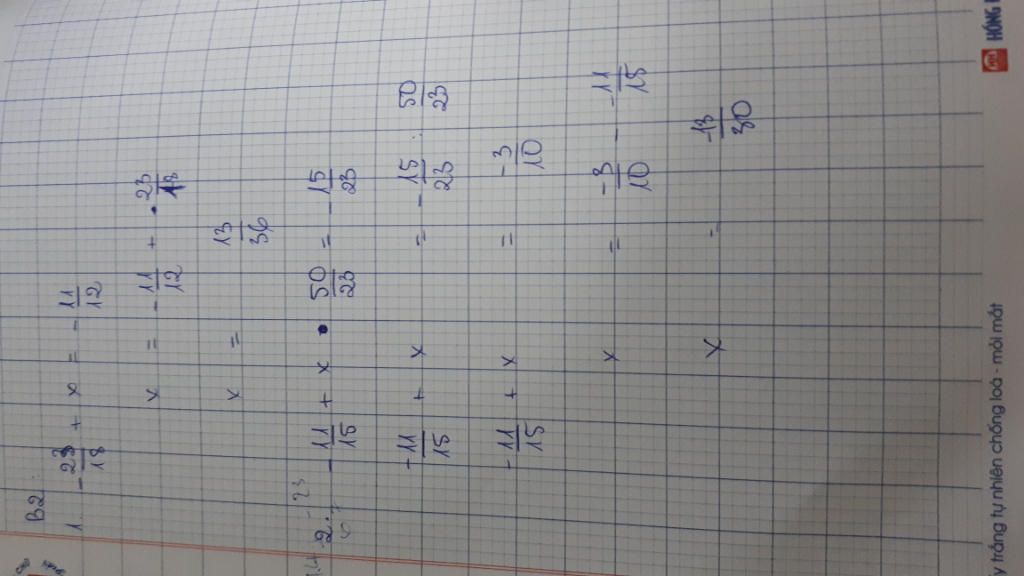 B2:
1. -23/18 + x = -11/12
x = -11/12 + 23/18
x = 13/36
2. -11/15 + x • 50/23 = -15/23
-11/15 + x = -15/23 : 50/23
-11/15 + x = -3/10
x = -3/10 - -11/15
x = -13/30
y trắng tự nhiên chống loá - mỏi mắt
HỒNG